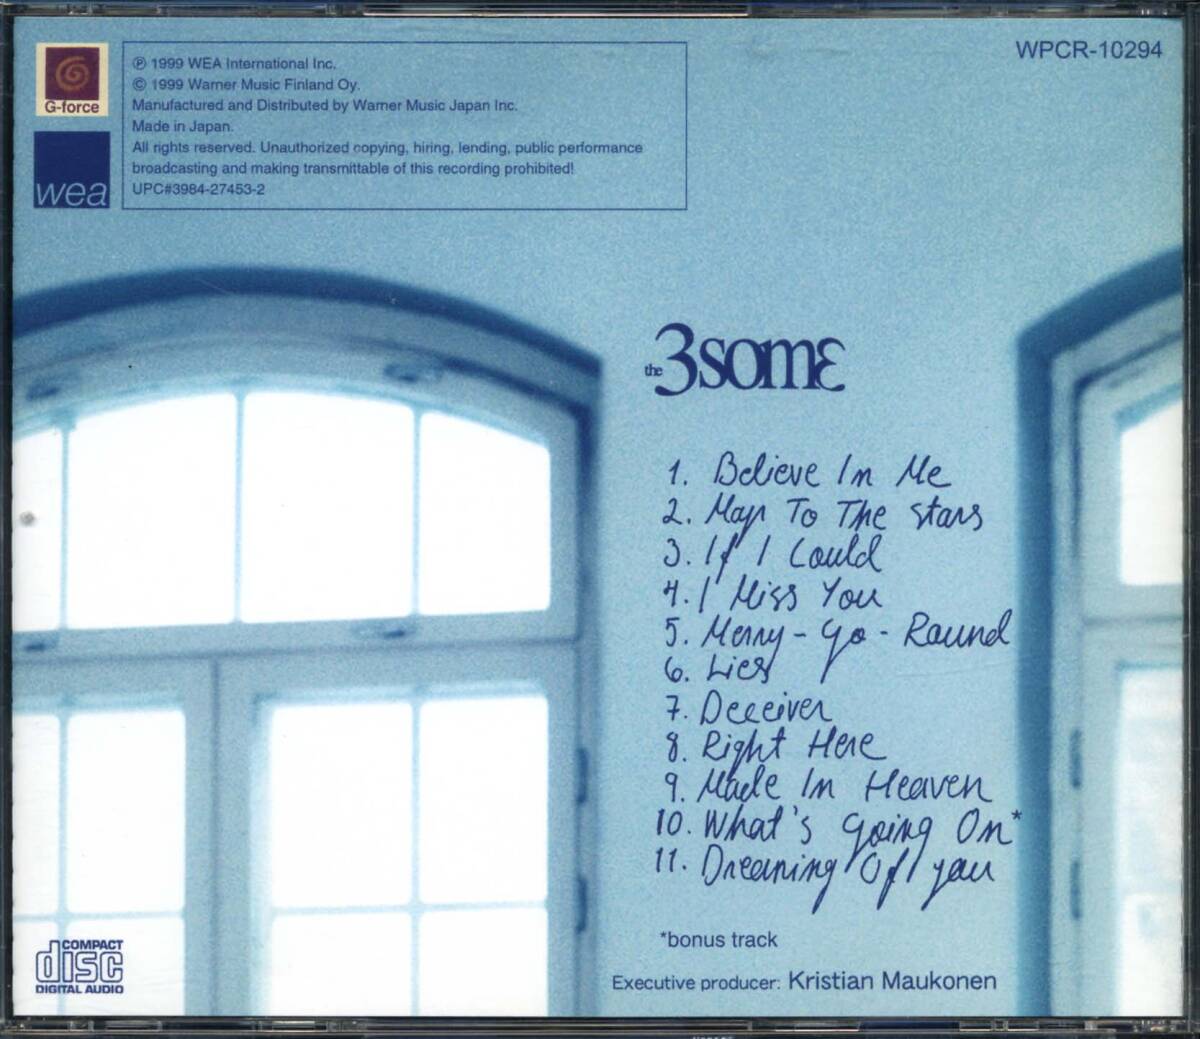 G-force
wea
℗ 1999 WEA International Inc.
© 1999 Warner Music Finland Oy.
Manufactured and Distributed by Warner Music Japan Inc.
Made in Japan.
All rights reserved. Unauthorized copying, hiring, lending, public performance
broadcasting and making transmittable of this recording prohibited!
UPC#3984-27453-2
WPCR-10294
the 3some
1. Believe In Me
2. Map To The Stars
3. If I Could
4. I Miss You
5. Merry-Go-Round
6. Lies
7. Deceiver
8. Right Here
9. Made In Heaven
10. What's Going On*
11. Dreaming Of you
*bonus track
Executive producer: Kristian Maukonen
COMPACT
disc
DIGITAL AUDIO